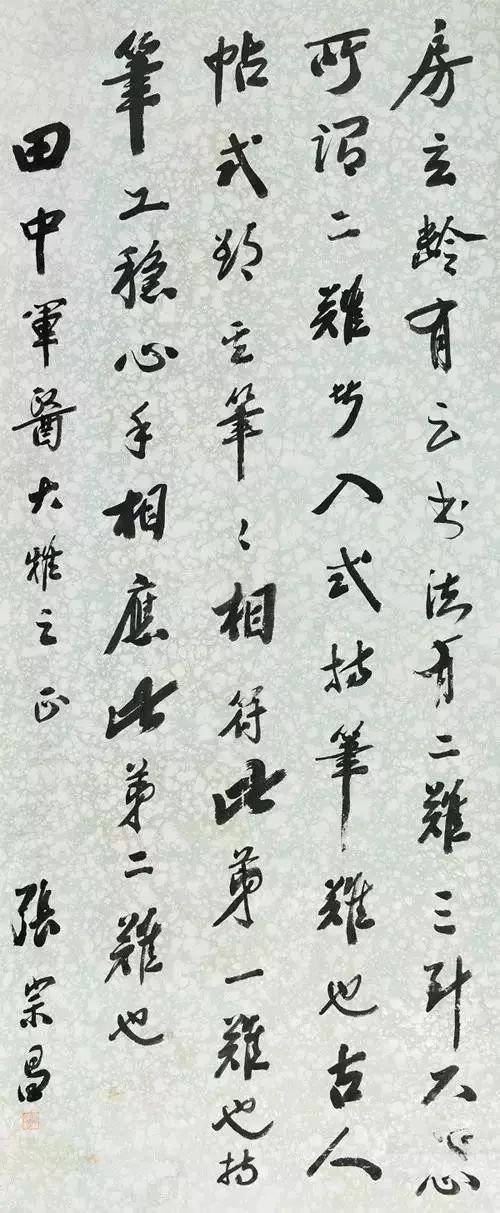 房玄齡有云书法有二難三斗不
所謂二難步入式持筆難也古人
帖式筆〻相符此第一難也持
筆工穩心手相應此第二難也
田中軍醫大雅之正
張宗昌